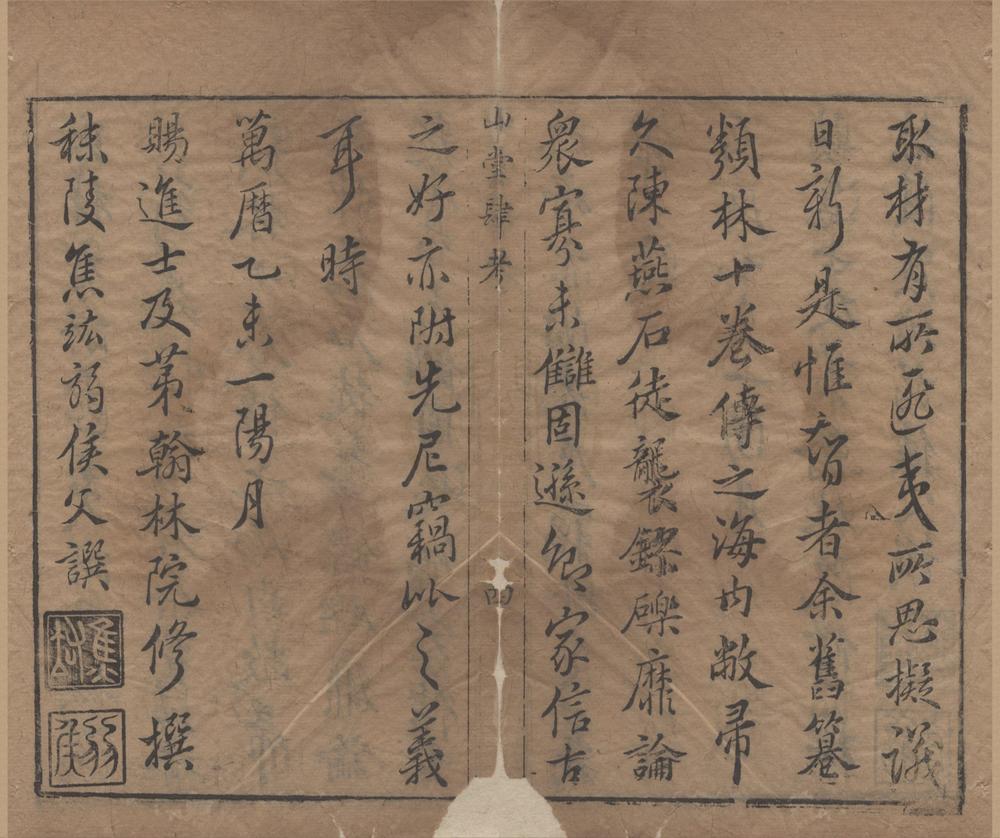 取材有所匪夷所思擬議
日新是惟智者余舊篹
類林十卷傳之海内敝帚
久陳燕石徒襲鏐礫靡論
衆寡未讎固遜卿家信古
山堂肆考
四
之好亦附先尼竊比之義
耳時
萬曆乙未一陽月
賜進士及苐翰林院修撰
秣陵焦竑弱侯父譔
焦竑
弱侯